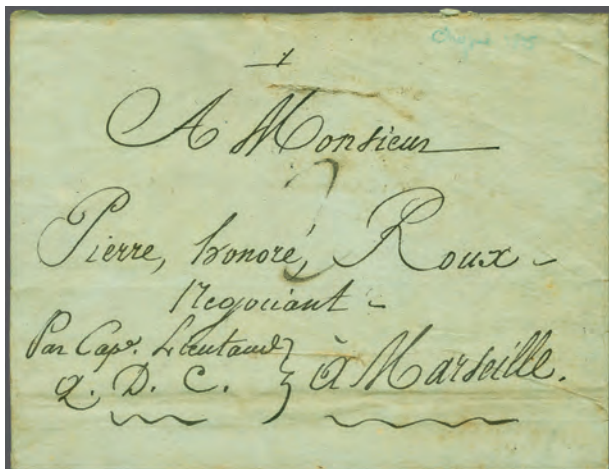 1
A Monsieur
2
Pierre, honoré, Roux
Negociant
Par Capⁿ. Lieutaud
Q. D. C. } à Marseille.